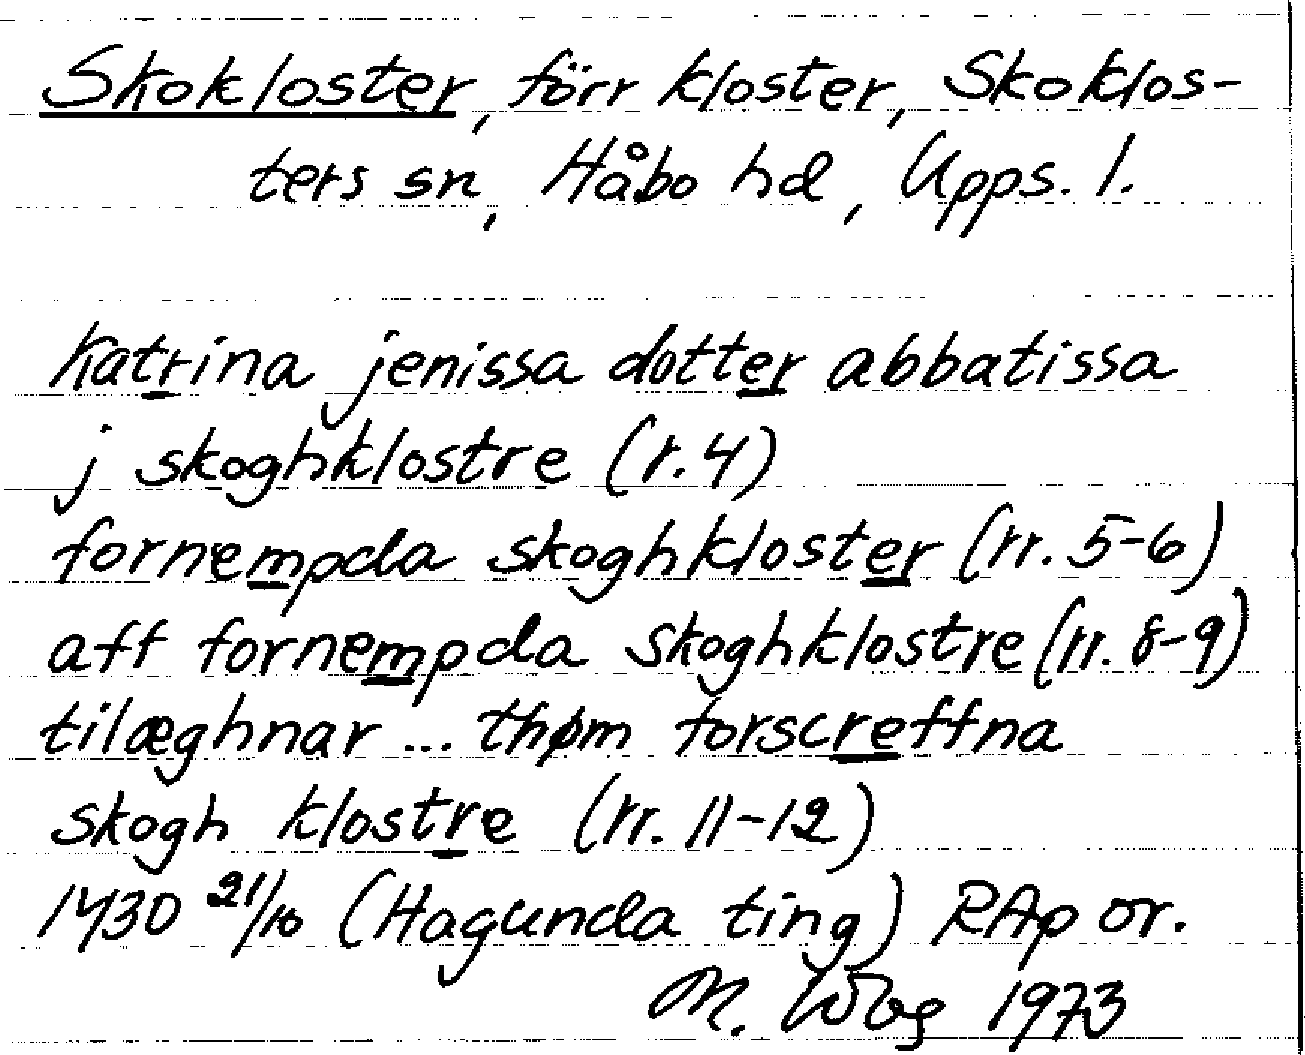 Skokloster, förr kloster, Skoklos-
ters sn, Håbo hd, Upps. l.
Katrina jenissa dotter abbatissa
j skoghklostre (r. 4)
fornempda skoghkloster (rr. 5-6)
aff fornempda skoghklostre (rr. 8-9)
tilæghnar ... thøm forscreffna
skogh klostre (rr. 11-12)
1430 21/10 (Hagunda ting) RAp or.
M. Wbg 1973